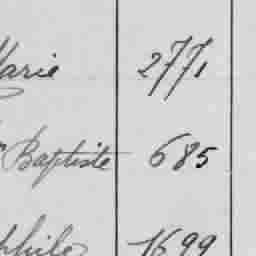 Marie 2771
Baptiste 685
1699